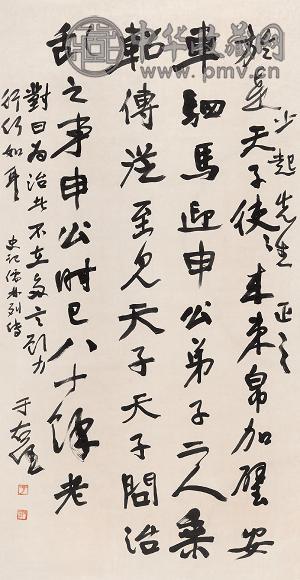 中华收藏网
www.pmv.cn
少起先生正之
於是天子使使束帛加璧安
車駟馬迎申公弟子二人乘
軺傳從至見天子天子問治
亂之事申公時已八十餘老
對曰為治者不在多言顧力
行何如耳 史記儒林列傳
于右任